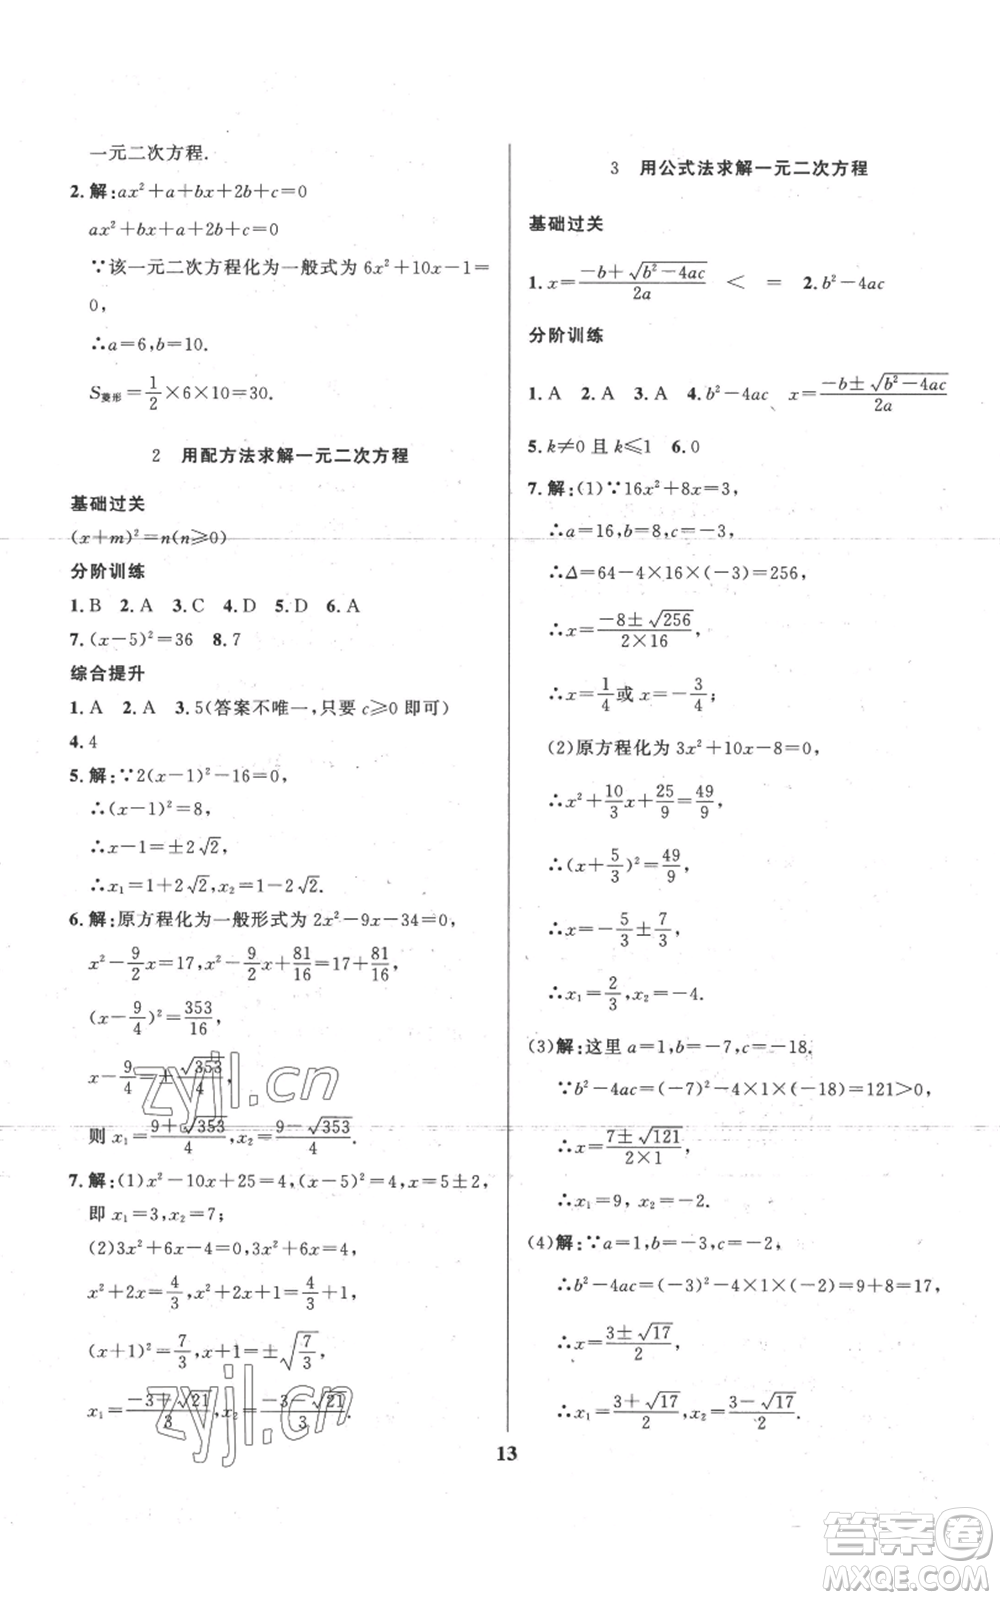 一元二次方程.
2.解:ax²+a+bx+2b+c=0
ax²+bx+a+2b+c=0
∵该一元二次方程化为一般式为 6x²+10x-1=
0,
∴a=6,b=10.
S菱形=1/2×6×10=30.
2 用配方法求解一元二次方程
基础过关
(x+m)²=n(n≥0)
分阶训练
1.B 2.A 3.C 4.D 5.D 6.A
7.(x-5)²=36 8.7
综合提升
1.A 2.A 3.5(答案不唯一,只要 c≥0 即可)
4.4
5.解:∵2(x-1)²-16=0,
∴(x-1)²=8,
∴x-1=±2√2,
∴x₁=1+2√2,x₂=1-2√2.
6.解:原方程化为一般形式为 2x²-9x-34=0,
x²-9/2x=17,x²-9/2x+81/16=17+81/16,
(x-9/4)²=353/16,
x-9/4=±√353/4,
则 x₁=(9+√353)/4,x₂=(9-√353)/4.
7.解:(1)x²-10x+25=4,(x-5)²=4,x=5±2,
即 x₁=3,x₂=7;
(2)3x²+6x-4=0,3x²+6x=4,
x²+2x=4/3,x²+2x+1=4/3+1,
(x+1)²=7/3,x+1=±√(7/3),
x₁=(-3+√21)/3,x₂=(-3-√21)/3.
3 用公式法求解一元二次方程
基础过关
1.x=(-b±√(b²-4ac))/2a < = 2.b²-4ac
分阶训练
1.A 2.A 3.A 4.b²-4ac x=(-b±√(b²-4ac))/2a
5.k≠0 且 k≤1 6.0
7.解:(1)∵16x²+8x=3,
∴a=16,b=8,c=-3,
∴Δ=64-4×16×(-3)=256,
∴x=(-8±√256)/(2×16),
∴x=1/4或 x=-3/4;
(2)原方程化为 3x²+10x-8=0,
∴x²+10/3x+25/9=49/9,
∴(x+5/3)²=49/9,
∴x=-5/3±7/3,
∴x₁=2/3,x₂=-4.
(3)解:这里 a=1,b=-7,c=-18.
∵b²-4ac=(-7)²-4×1×(-18)=121>0,
∴x=(7±√121)/(2×1),
∴x₁=9,x₂=-2.
(4)解:∵a=1,b=-3,c=-2,
∴b²-4ac=(-3)²-4×1×(-2)=9+8=17,
∴x=(3±√17)/2,
∴x₁=(3+√17)/2,x₂=(3-√17)/2.
13
zyjl.cn
zyjl.cn
答案卷
MXQE.COM